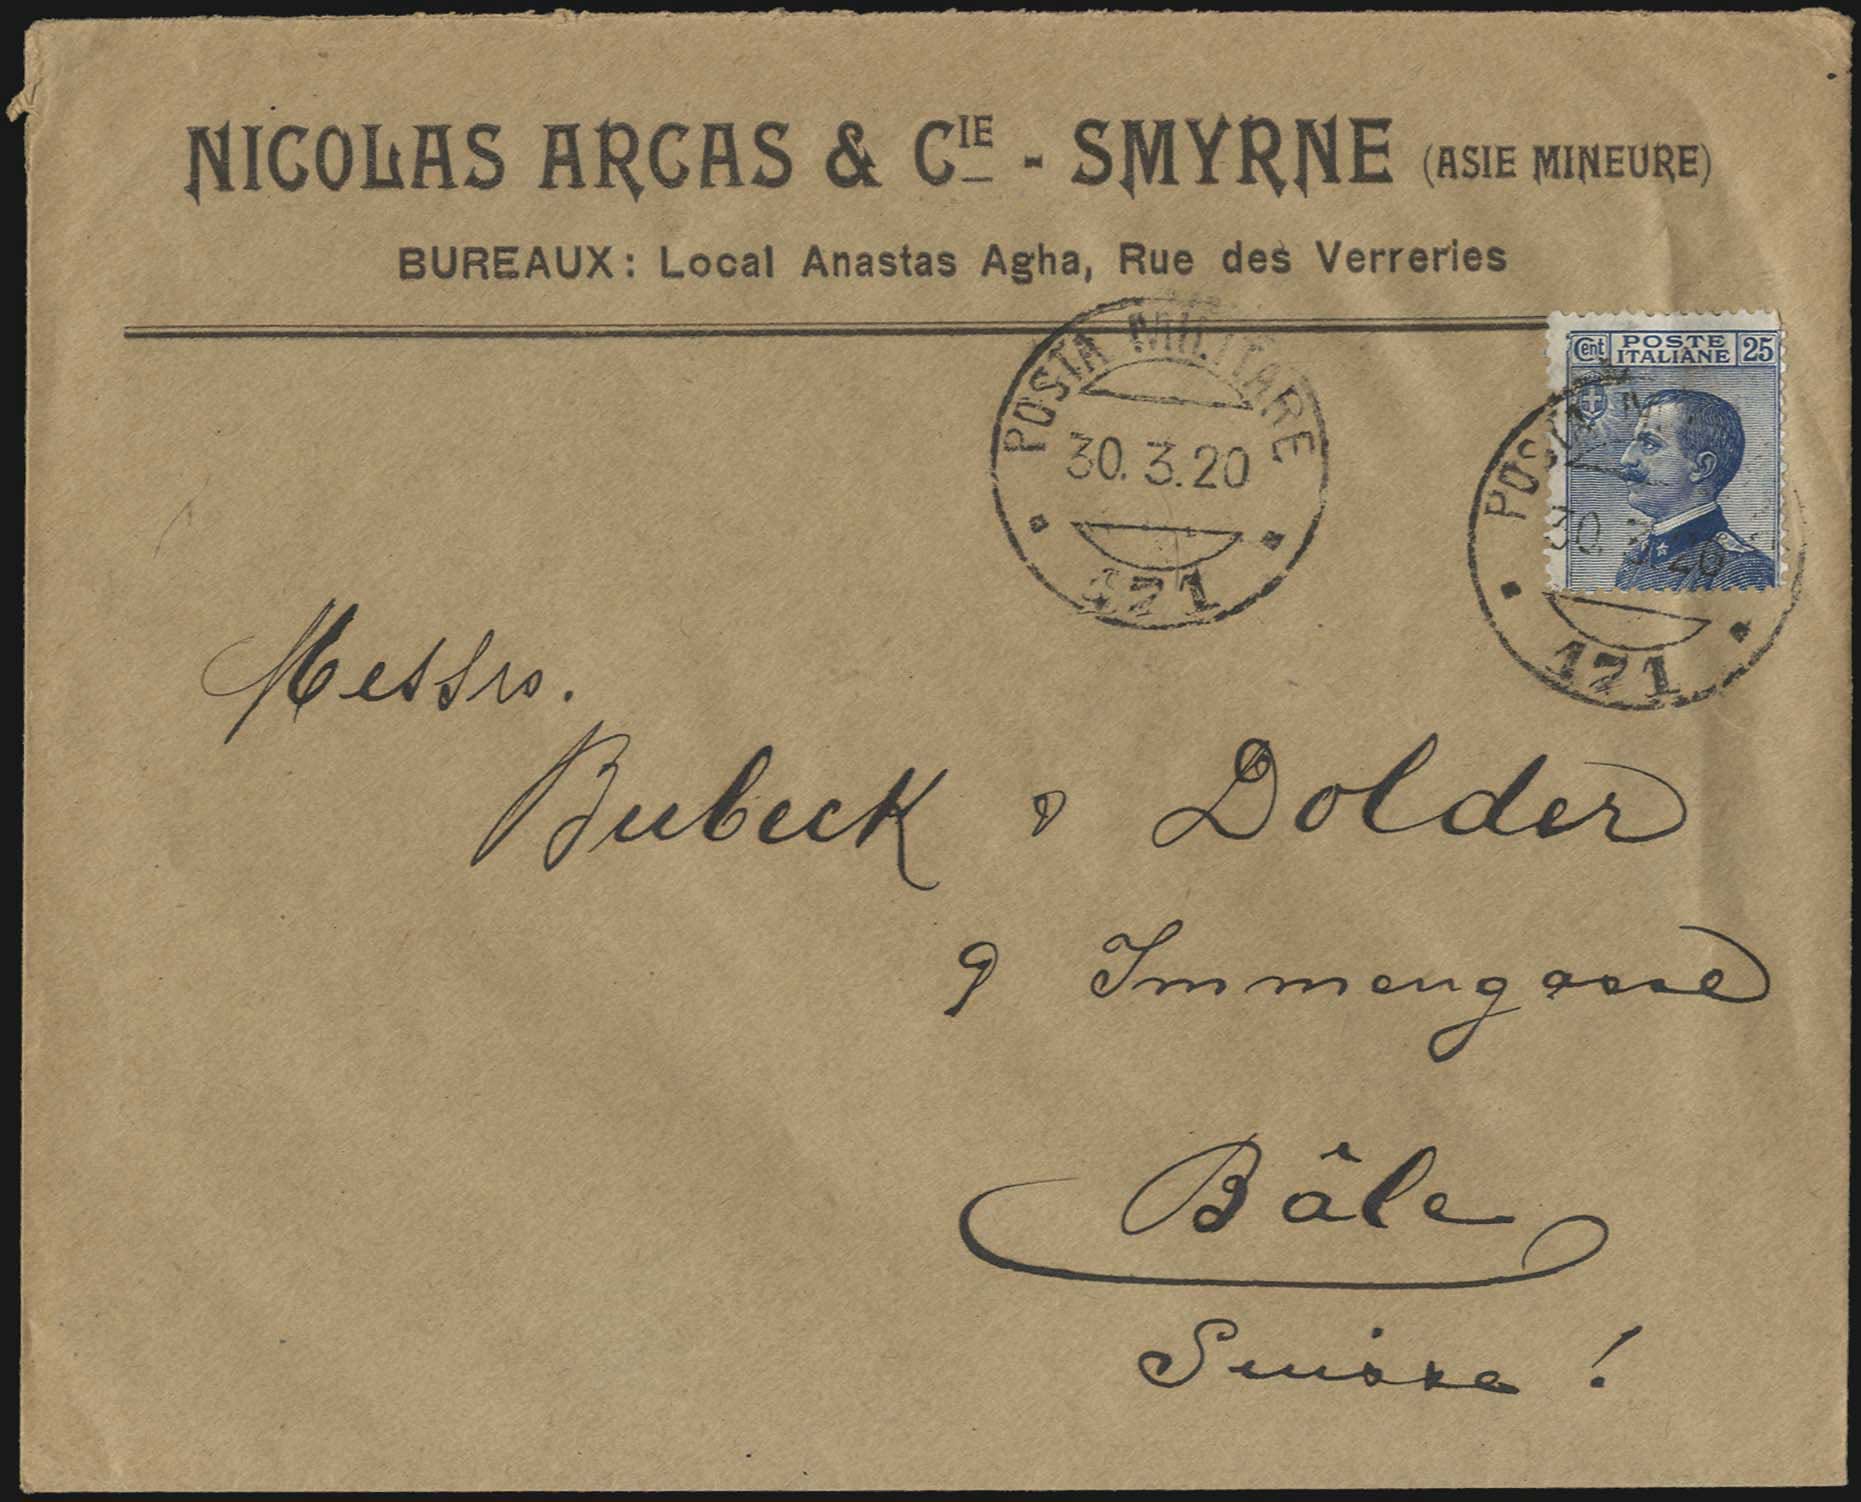 NICOLAS ARCAS & CIE - SMYRNE (ASIE MINEURE)
BUREAUX: Local Anastas Agha, Rue des Verreries
Cent POSTE ITALIANE 25
POSTA MILITARE
30.3.20
171
POSTA M
30.3.20
171
Messrs.
Bubeck & Dolder
9 Immengasse
Bâle
Suisse!